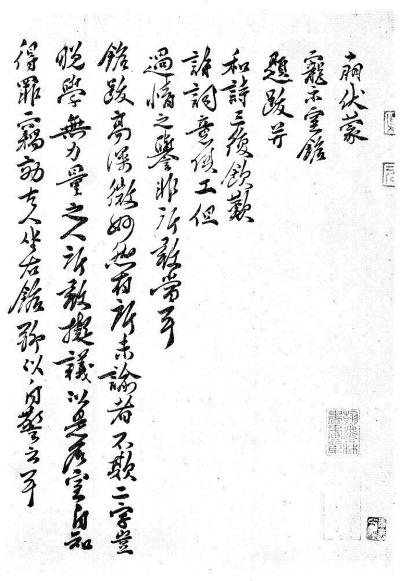 伏蒙
寵示室銘
題跋并
和詩三復欽歎
詩詞意俱工但
過情之譽非所敢當耳
銘跋高深微妙然有所未諭者不欺二字豈
晚學無力量之人所敢擬議以是居室自知
得罪二竊古人坐右銘聊以自警云耳